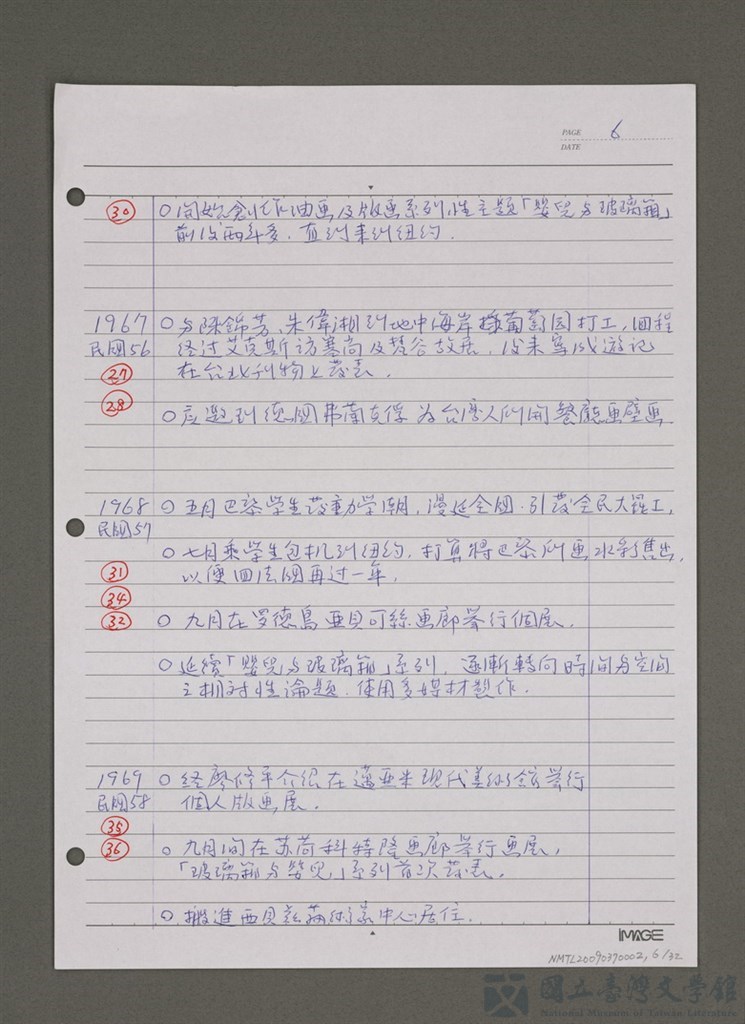 PAGE 6
DATE
30 ○ 開始創作油画及版画系列性主題「嬰兒与玻璃箱」
前后兩年多.直到来到纽约.
1967 ○ 与陈錦芳、朱偉湘到地中海岸摘葡萄园打工,回程
民國56 经过艾克斯访塞尚及梵谷故居.後来寫成遊记
27 在台北刊物上發表.
28
○ 应邀到德國弗蘭克俘 为台灣人所開餐廳画壁画
1968 ○ 五月巴黎学生發動学潮,漫延全國.引發全民大罷工,
民國57
○ 七月乘学生包机到纽约,打算將巴黎所画水彩售出,
31 以便回法國再过一年,
34
32 ○ 九月在罗德島 画廊举行個展.
○ 延續「嬰兒与玻璃箱」系列,逐漸轉向時间与空间
之相对性論題.使用多媒材製作.
1969 ○ 经廖修平介绍在邁亚米現代美術舘举行
民國58 個人版画展.
35
36 ○ 九月间在苏荷科特隆画廊举行画展,
「玻璃箱与嬰兒」系列首次發表.
○ 搬進西貝 藝術家中心居住.
IMAGE
NMTL20090370002, 6/32
國立臺灣文學館
National Museum of Taiwan Literature